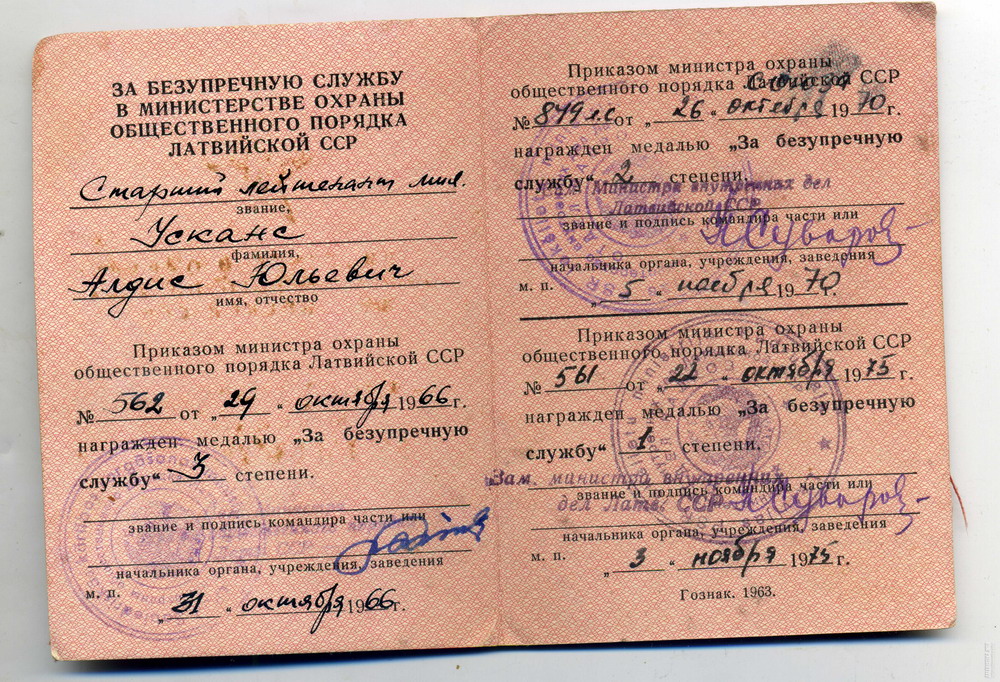 ЗА БЕЗУПРЕЧНУЮ СЛУЖБУ
В МИНИСТЕРСТВЕ ОХРАНЫ
ОБЩЕСТВЕННОГО ПОРЯДКА
ЛАТВИЙСКОЙ ССР
Старший лейтенант мил.
звание,
Усканс
фамилия,
Алдис Юльевич
имя, отчество
Приказом министра охраны
общественного порядка Латвийской ССР
№ 562 от „ 29 “ октября 1966 г.
награжден медалью „За безупречную
службу“ 3 степени.
звание и подпись командира части или
начальника органа, учреждения, заведения
м. п.
„ 31 “ октября 1966 г.
Приказом министра охраны
общественного порядка Латвийской ССР
Союза
№ 849 лс от „ 26 “ октября 1970 г.
награжден медалью „За безупречную
службу“ 2 степени.
Министра внутренних дел
Латвийской ССР
звание и подпись командира части или
начальника органа, учреждения, заведения
м. п.
„ 5 “ ноября 1970 г.
Приказом министра охраны
общественного порядка Латвийской ССР
№ 561 от „ 22 “ октября 1975 г.
награжден медалью „За безупречную
службу“ 1 степени.
Зам. министра внутренних
дел Латв. ССР
звание и подпись командира части или
начальника органа, учреждения, заведения
м. п.
„ 3 “ ноября 1975 г.
Гознак. 1963.